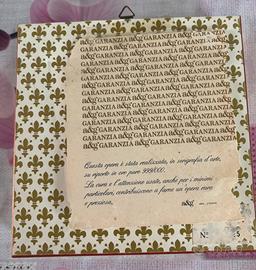 a&g GARANZIA a&g GARANZIA a&g
GARANZIA a&g GARANZIA a&g GARANZIA
a&g GARANZIA a&g GARANZIA a&g
GARANZIA a&g GARANZIA a&g GARANZIA
a&g GARANZIA a&g GARANZIA a&g
GARANZIA a&g GARANZIA a&g GARANZIA
a&g GARANZIA a&g GARANZIA a&g
GARANZIA a&g GARANZIA a&g GARANZIA
a&g GARANZIA a&g GARANZIA a&g
GARANZIA a&g GARANZIA a&g GARANZIA
a&g GARANZIA a&g GARANZIA a&g
GARANZIA a&g GARANZIA a&g GARANZIA
Questa opera è stata realizzata, in serigrafia d'arte,
su riporto in oro puro 999/000.
La cura e l'attenzione usate, anche per i minimi
particolari, contribuiscono a farne un'opera rara
e preziosa.
a&g
N° 5